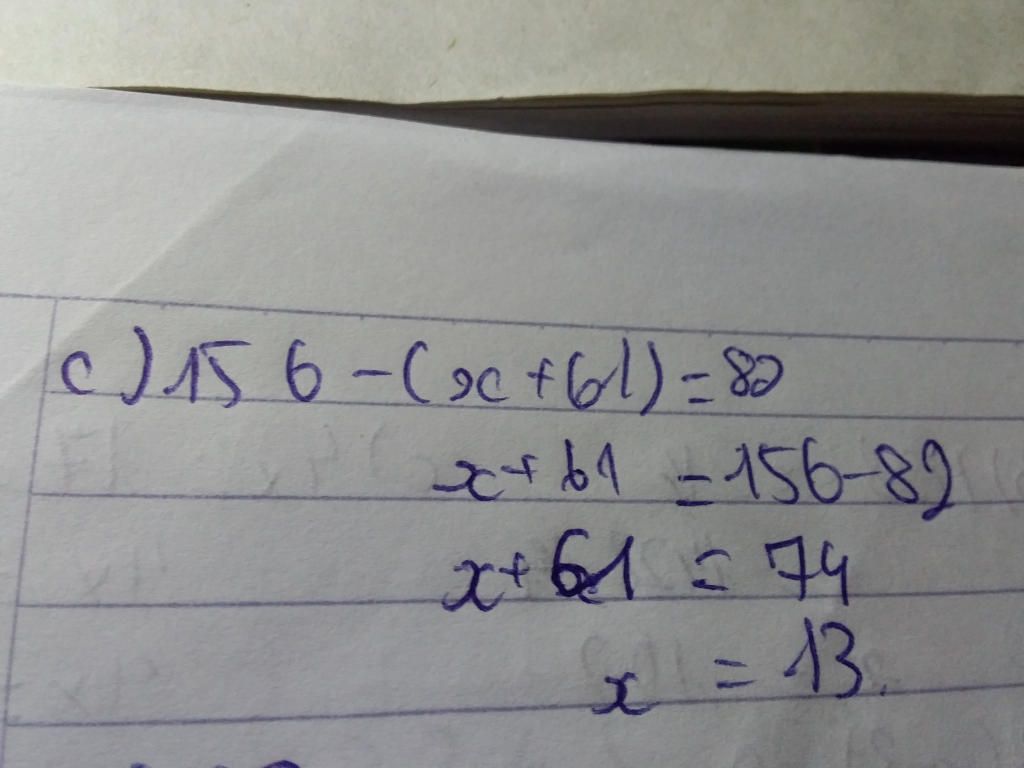 c) 156 - (x + 61) = 82
x + 61 = 156 - 82
x + 61 = 74
x = 13.